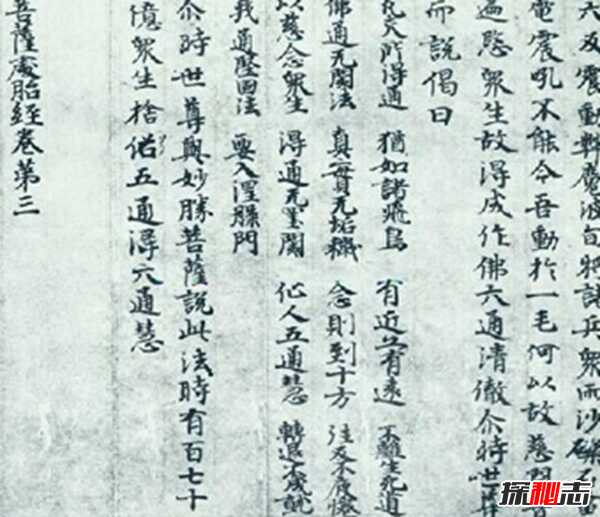 天及震動軒魔波旬将諸兵衆而沙礫
電震吼不能令吾動於一毛何以故慈
遍愍衆生故得成作佛六通清徹尒時世
而說偈曰
得通 猶如諸飛鳥 有近亦有遠 不離生死道
佛通无閡法 真實无垢穢 念則到十方 往反不
以慈念衆生 得通无罣閡 仙人五通慧 轉退不成就
我通堅固法 要入涅槃門
尒時世尊與妙勝菩薩說此法時有百七十
億衆生捨俗五通得六通慧
菩薩處胎經卷第三
探秘志